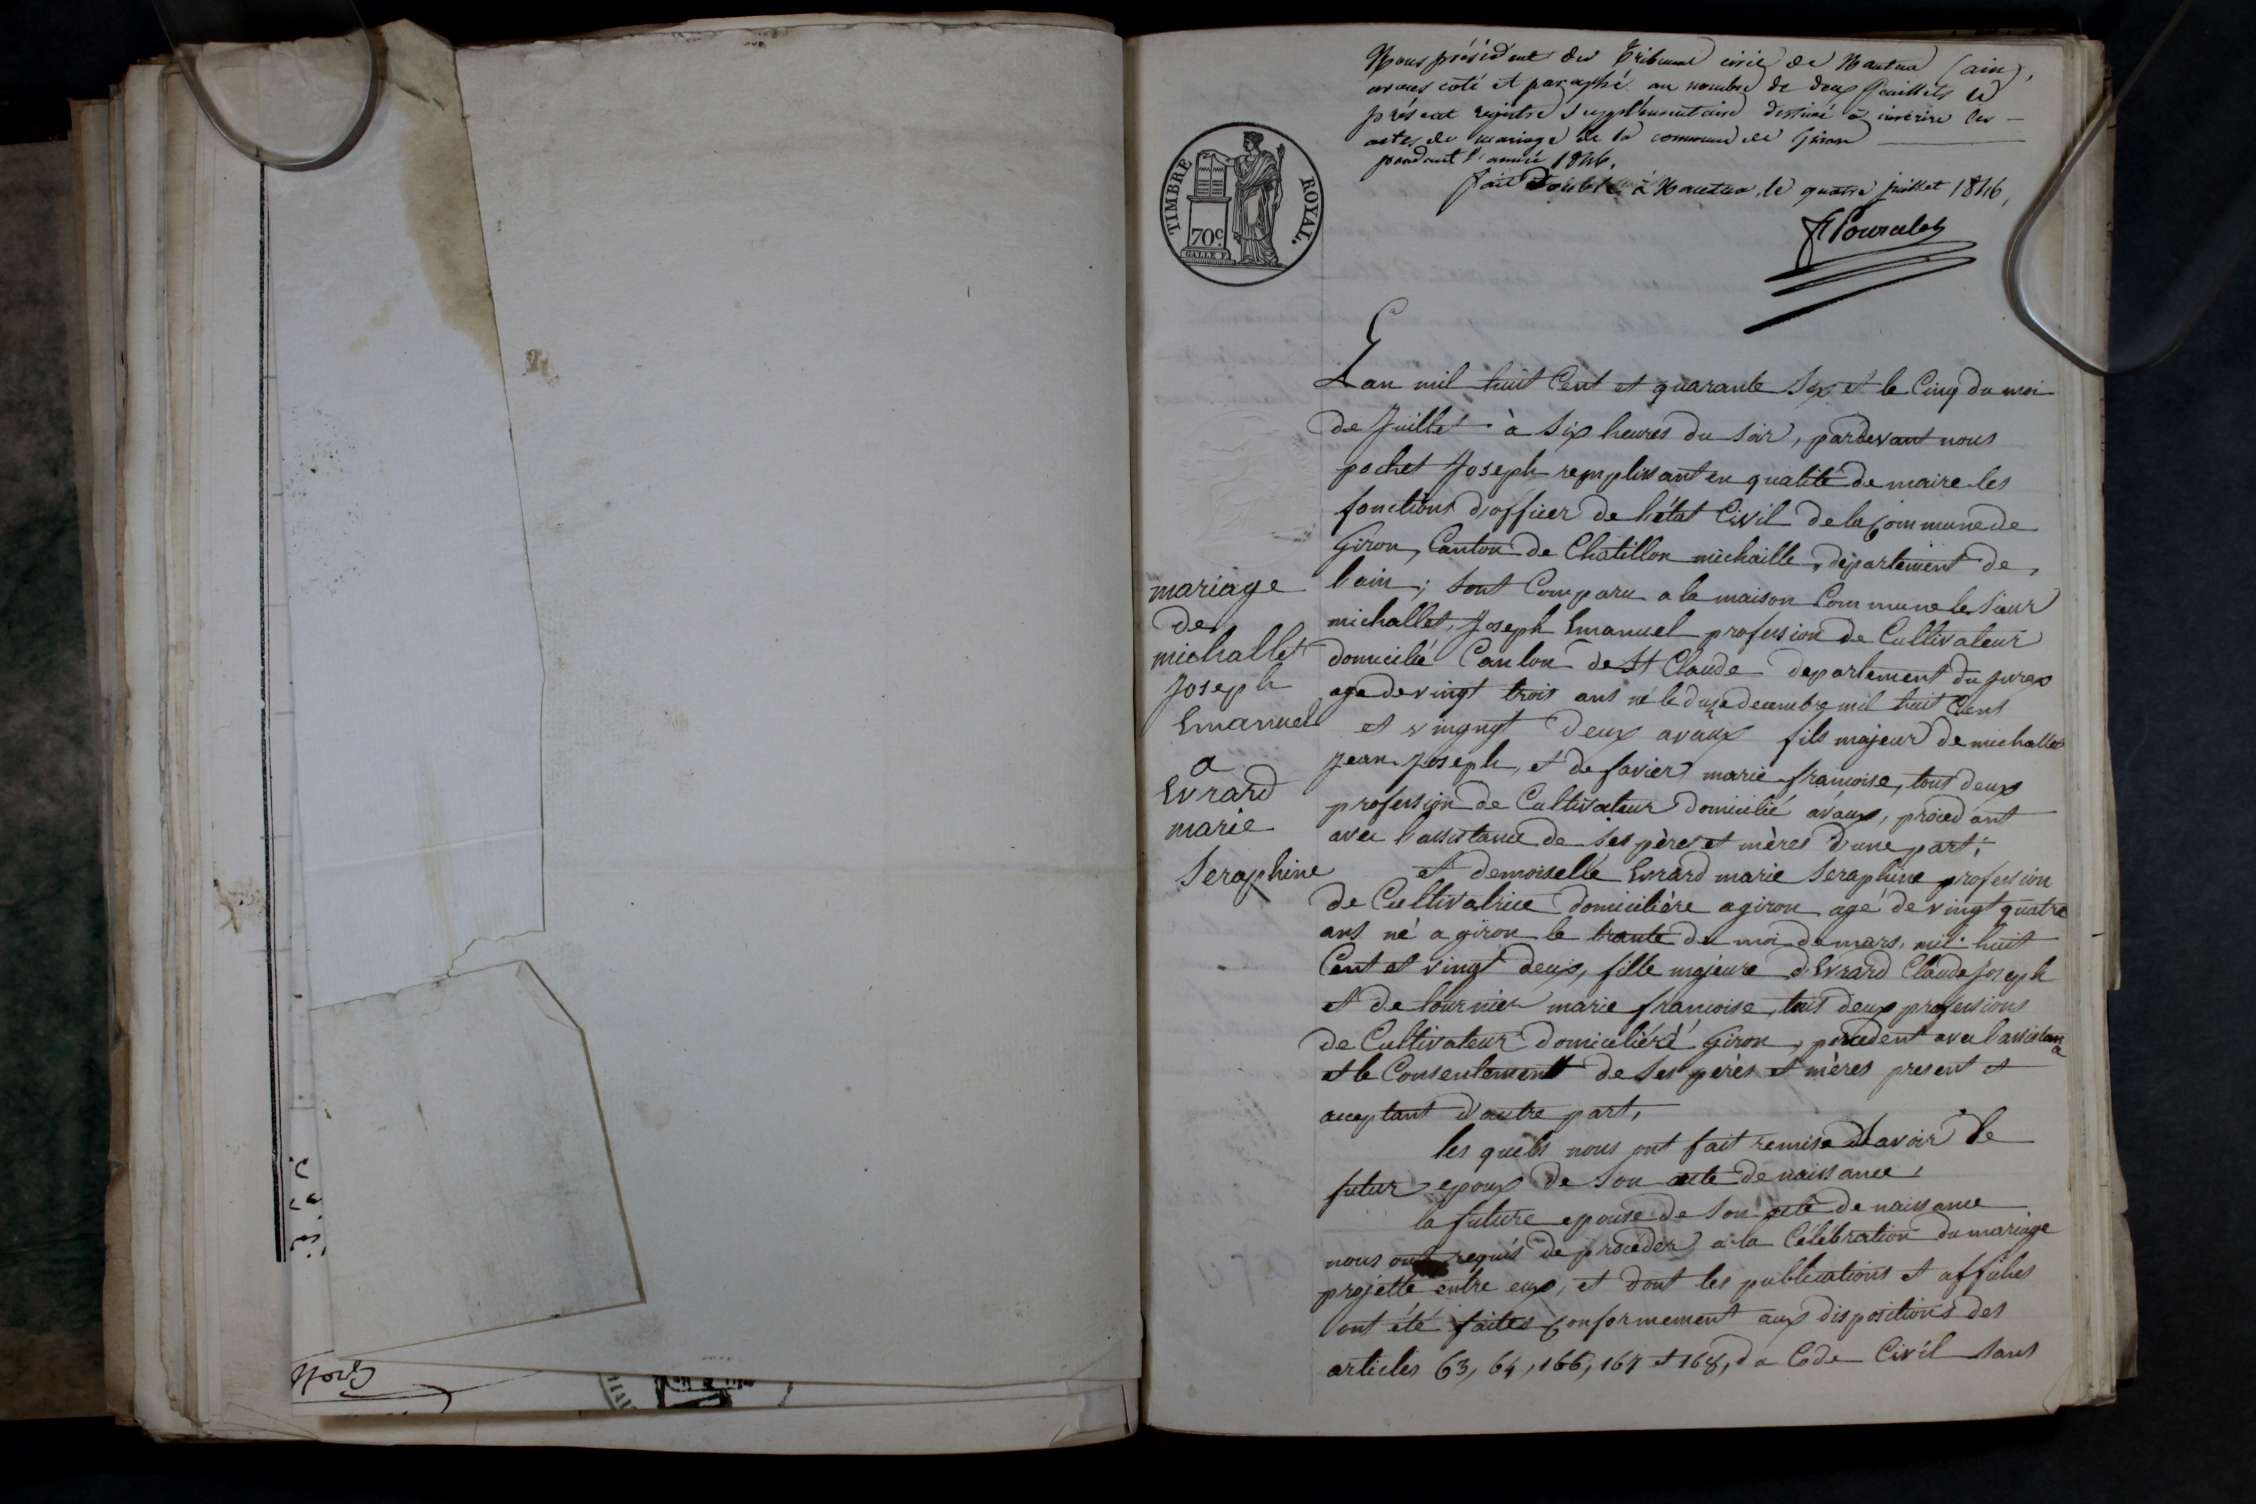 Nous président du Tribunal civil de Nantua (ain),
avons coté et paraphé au nombre de deux feuillets le
présent registre supplémentaire destiné à inscrire les
actes de mariage de la commune de Giron
pendant l'année 1846.
fait Double à Nantua, le quatre juillet 1846,
TIMBRE ROYAL.
70c.
L'an mil huit Cent et quarante Six et le Cinq du moi
de Juillet à Six heures du Soir, pardevant nous
pochet Joseph remplissant en qualité de maire les
fonctions d'officer de l'état Civil de la Commune de
Giron, Canton de Chatillon michaille, département de
l'ain; Sont Comparu a la maison Commune le Sieur
michallet, Joseph Emanuel profession de Cultivateur
domicilié Canton de St Claude departement du jura
age de vingt trois ans né le decembre mil huit Cens
et vingngt deux avaux fils majeur de michallet
jean joseph, et de favier marie francoise, tous deux
profession de Cultivateur domicilié avaux, procedant
avec l'assistance de Ses pères et mères d'une part;
et demoiselle Evrard marie Seraphine profession
de Cultivatrice domicilière a giron agé de vingt quatre
ans né a giron le trante du moi de mars, mil huit
Cent et vingt deux, fille majeure d'Evrard Claude Joseph
et de tournier marie francoise, tous deux professions
de Cultivateur domicilièré Giron, procedent avec l'assistance
et le Consentement de Ses pères et mères present et
acceptant d'autre part,
les quels nous ont fait remise Savoir le
futur epoux de Son acte de naissance,
la future epouse de Son acte de naissance
nous ont requis de proceder a la Célébration du mariage
projetté entre eux, et dont les publications et affiches
ont été faites Conformement aux dispositions des
articles 63, 64, 166, 167 et 168, du Code Civil Sans
mariage
de
michallet
Joseph
Emanuel
a
Evrard
marie
Seraphine